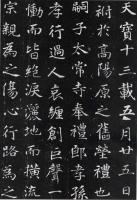 天寶十三載五月廿五日
祔於高陽原之舊塋禮也
子太常寺奉禮郎季孫
孝行過人哀纏創巨聲
慟而皆絕淚灑地而橫流
宗親為之傷心行路為之